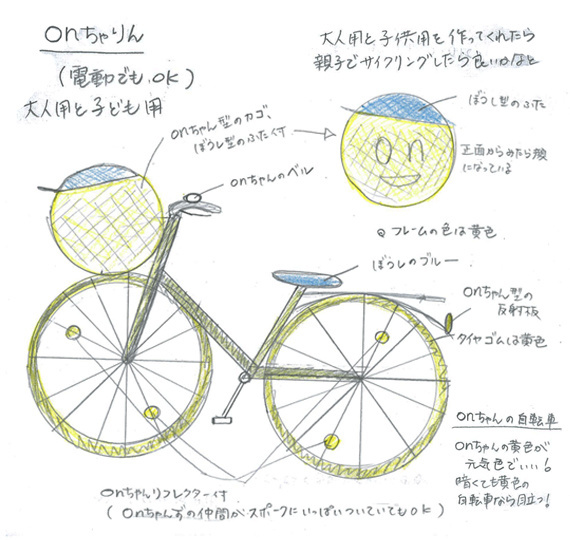 onちゃりん
(電動でもOK)
大人用と子ども用
大人用と子供用を作ってくれたら
親子でサイクリングしたら良いかなと
onちゃん型のカゴ、
ぼうし型のふた付
ぼうし型のふた
on
正面からみたら顔
になっている
onちゃんのベル
◎フレームの色は黄色
ぼうしのブルー
onちゃん型の
反射板
タイヤゴムは黄色
onちゃんの自転車
onちゃんの黄色が
元気色でいい!
暗くても黄色の
自転車なら目立つ!
onちゃんリフレクター付
(onちゃんずの仲間がスポークにいっぱいついていてもOK)